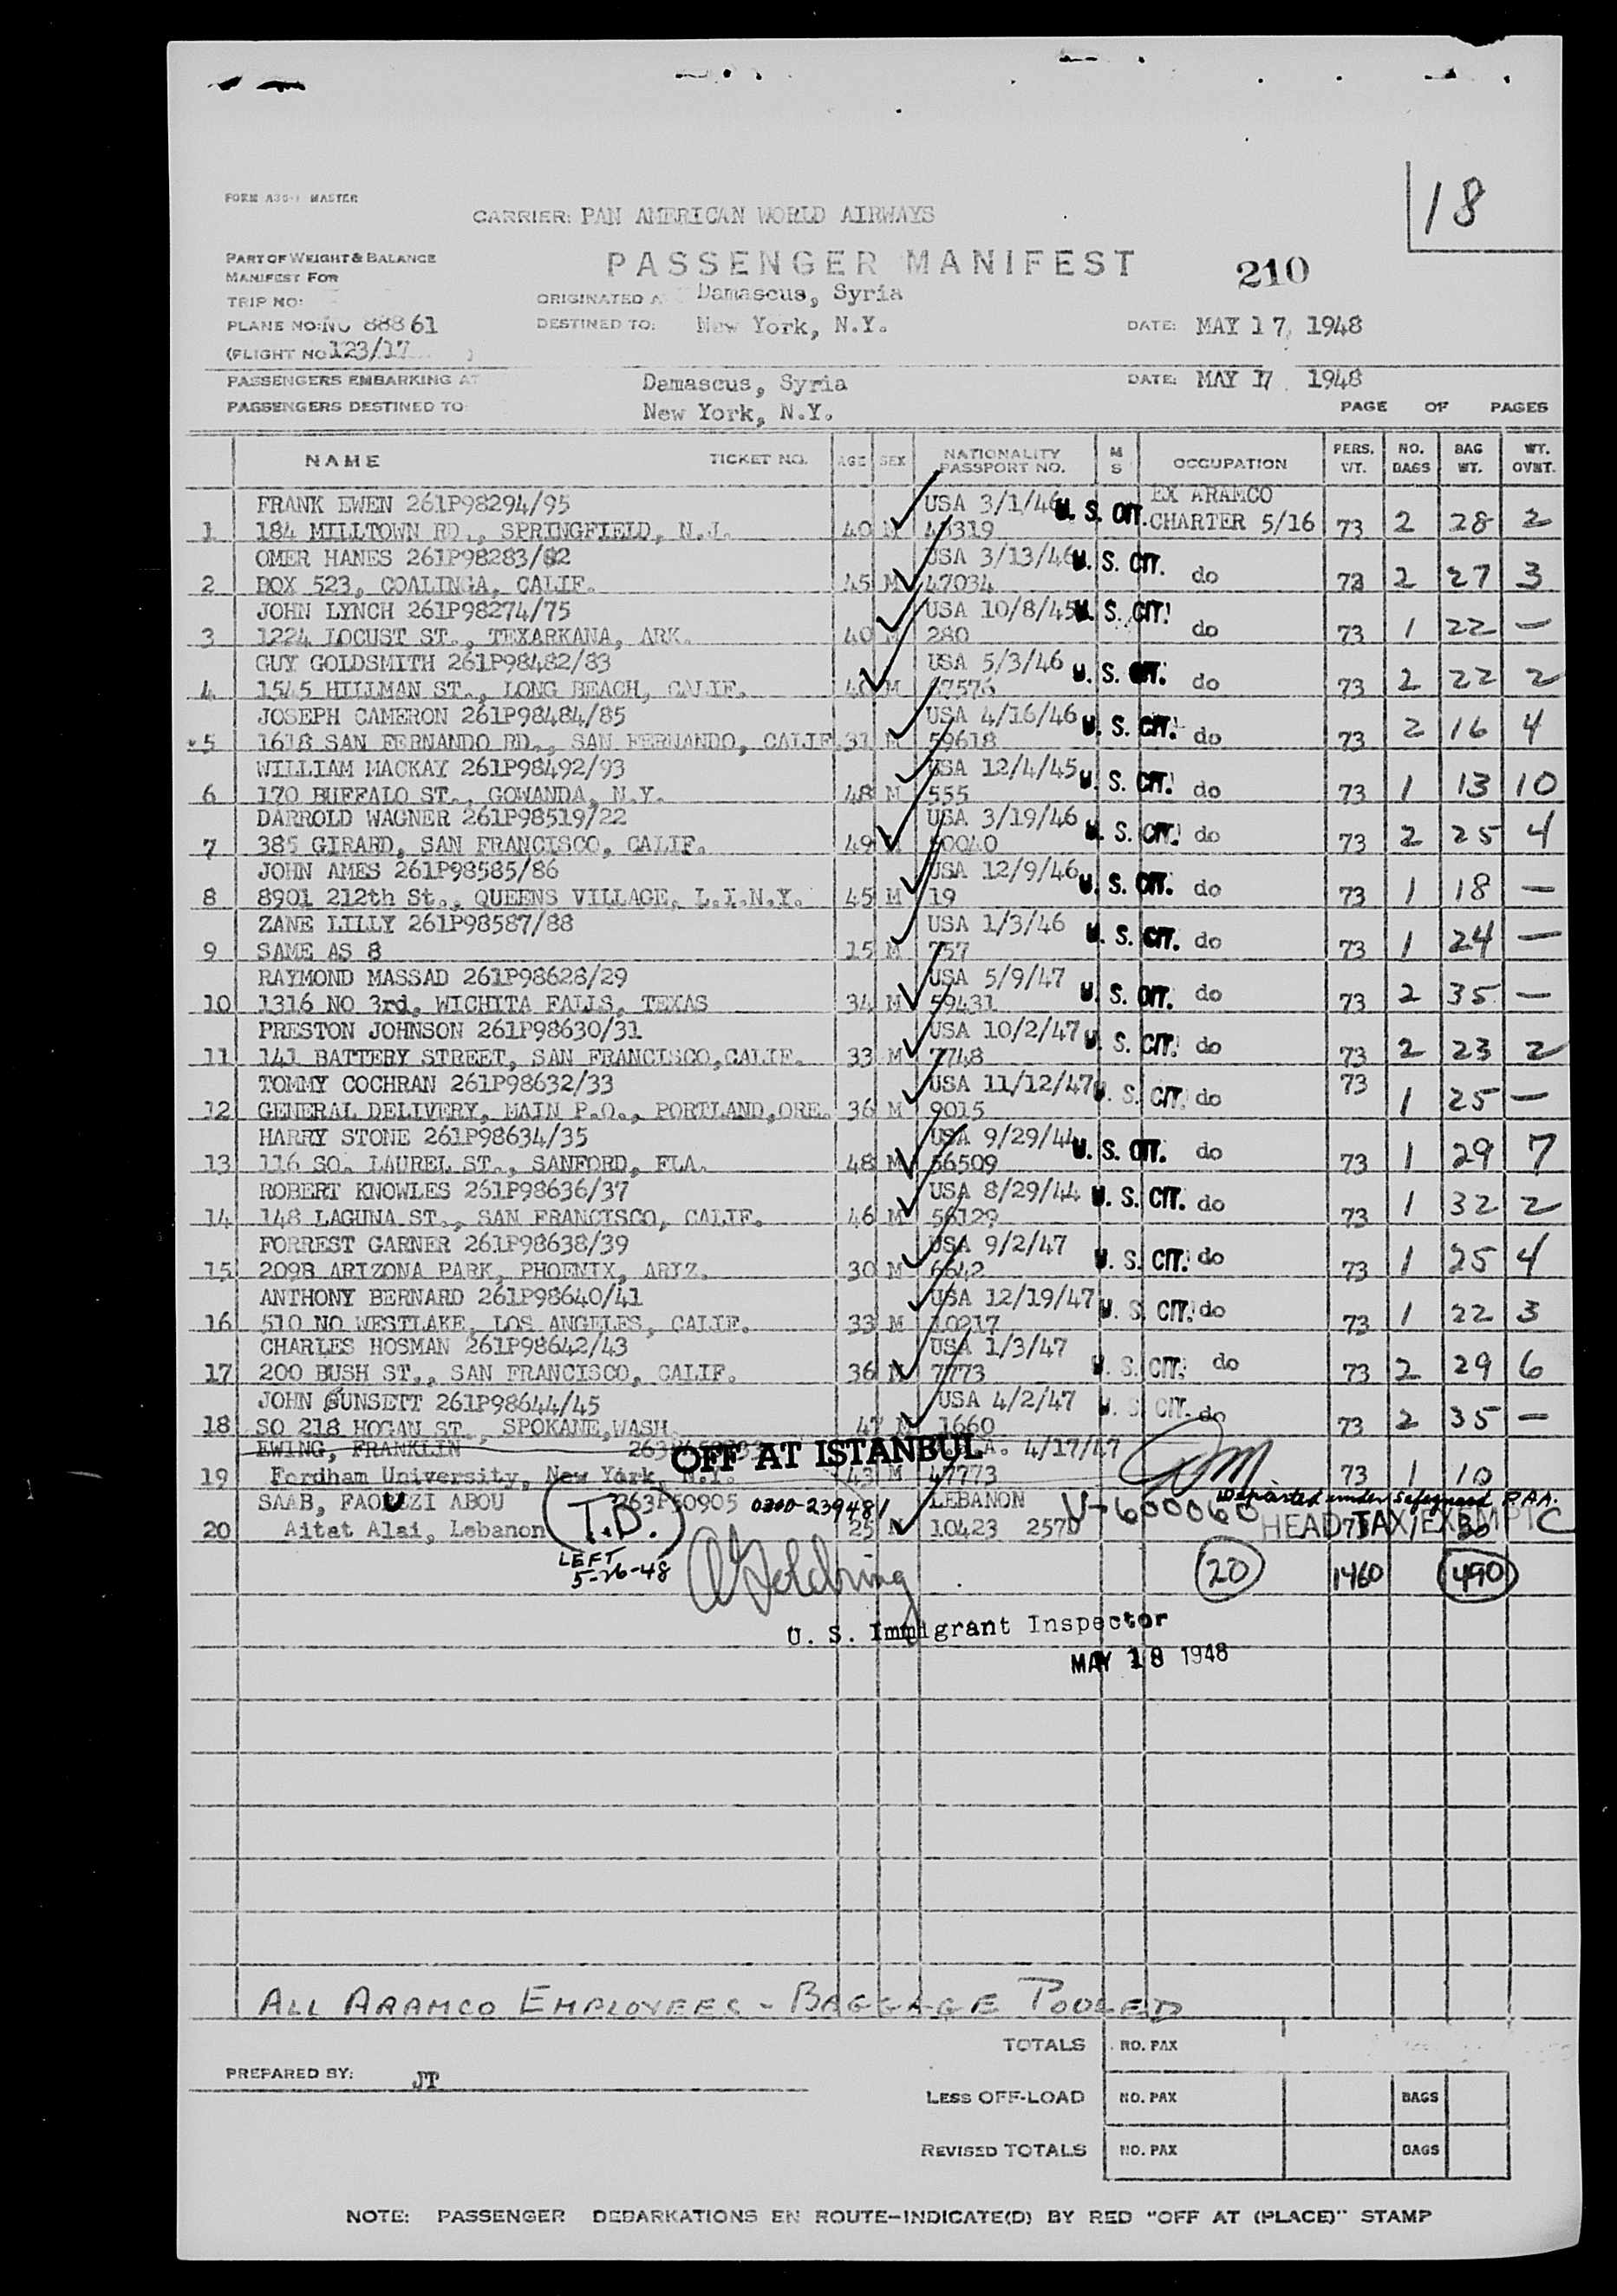 18
FORM A35-1 MASTER
CARRIER: PAN AMERICAN WORLD AIRWAYS
PART OF WEIGHT & BALANCE
MANIFEST FOR
PASSENGER MANIFEST
210
TRIP NO:
ORIGINATED A Damascus, Syria
PLANE NO: NC 88861
DESTINED TO: New York, N.Y.
DATE: MAY 17, 1948
(FLIGHT NO 123/17 )
PASSENGERS EMBARKING AT Damascus, Syria DATE: MAY 17 1948
PASSENGERS DESTINED TO: New York, N.Y.
PAGE OF PAGES
NAME TICKET NO. AGE SEX NATIONALITY PASSPORT NO. M S OCCUPATION PERS. WT. NO. BAGS BAG WT. WT. OVWT.
FRANK EWEN 261P98294/95 USA 3/1/46 U. S. CIT. EX ARAMCO
1 184 MILLTOWN RD., SPRINGFIELD, N.J. 40 M 319 CHARTER 5/16 73 2 28 2
OMER HANES 261P98283/82 USA 3/13/46 U. S. CIT.
2 BOX 523, COALINGA, CALIF. 45 M 47034 do 73 2 27 3
JOHN LYNCH 261P98274/75 USA 10/8/45 U. S. CIT.
3 1224 LOCUST ST., TEXARKANA, ARK. 40 M 280 do 73 1 22 —
GUY GOLDSMITH 261P98482/83 USA 5/3/46 U. S. CIT.
4 1545 HILLMAN ST., LONG BEACH, CALIF. 40 M 47576 do 73 2 22 2
JOSEPH CAMERON 261P98484/85 USA 4/16/46 U. S. CIT.
5 1618 SAN FERNANDO RD., SAN FERNANDO, CALIF 31 M 59618 do 73 2 16 4
WILLIAM MACKAY 261P98492/93 USA 12/4/45 U. S. CIT.
6 170 BUFFALO ST., GOWANDA, N.Y. 48 M 555 do 73 1 13 10
DARROLD WAGNER 261P98519/22 USA 3/19/46 U. S. CIT.
7 385 GIRARD, SAN FRANCISCO, CALIF. 49 do 73 2 25 4
JOHN AMES 261P98585/86 USA 12/9/46 U. S. CIT.
8 8901 212th St., QUEENS VILLAGE, L.I.N.Y. 45 M 19 do 73 1 18 —
ZANE LILLY 261P98587/88 USA 1/3/46 U. S. CIT.
9 SAME AS 8 15 M 757 do 73 1 24 —
RAYMOND MASSAD 261P98628/29 USA 5/9/47 U. S. CIT.
10 1316 NO 3rd, WICHITA FALLS, TEXAS 34 M 59431 do 73 2 35 —
PRESTON JOHNSON 261P98630/31 USA 10/2/47 U. S. CIT.
11 141 BATTERY STREET, SAN FRANCISCO, CALIF. 33 M 7748 do 73 2 23 2
TOMMY COCHRAN 261P98632/33 USA 11/12/47 U. S. CIT.
12 GENERAL DELIVERY, MAIN P.O., PORTLAND, ORE. 36 M 9015 do 73 1 25 —
HARRY STONE 261P98634/35 USA 9/29/44 U. S. CIT.
13 116 SO. LAUREL ST., SANFORD, FLA. 48 M 56509 do 73 1 29 7
ROBERT KNOWLES 261P98636/37 USA 8/29/44 U. S. CIT.
14 148 LAGUNA ST., SAN FRANCISCO, CALIF. 46 M 56129 do 73 1 32 2
FORREST GARNER 261P98638/39 USA 9/2/47 U. S. CIT.
15 209B ARIZONA PARK, PHOENIX, ARIZ. 30 M 6642 do 73 1 25 4
ANTHONY BERNARD 261P98640/41 USA 12/19/47 U. S. CIT.
16 510 NO WESTLAKE, LOS ANGELES, CALIF. 33 M 10217 do 73 1 22 3
CHARLES HOSMAN 261P98642/43 USA 1/3/47 U. S. CIT.
17 200 BUSH ST., SAN FRANCISCO, CALIF. 36 M 7773 do 73 2 29 6
JOHN GUNSETT 261P98644/45 USA 4/2/47 U. S. CIT.
18 SO 218 HOGAN ST., SPOKANE, WASH. 47 M 1660 do 73 2 35 —
EWING, FRANKLIN OFF AT ISTANBUL 4/17/47
19 Fordham University, New York, N.Y. 43 M 47773 73 1 10
SAAB, FAOUZI ABOU 263P50905 0300-239481 LEBANON V-600060 Departed under safeguard P.A.A.
20 Aitat Alai, Lebanon T.D. 25 M 10423 257D HEAD TAX EXEMPT C 73 30
LEFT 5-26-48
20 1460 490
U. S. Immigrant Inspector
MAY 18 1948
ALL ARAMCO EMPLOYEES - BAGGAGE POOLED
TOTALS NO. PAX
PREPARED BY: JT
LESS OFF-LOAD NO. PAX BAGS
REVISED TOTALS NO. PAX BAGS
NOTE: PASSENGER DEBARKATIONS EN ROUTE-INDICATE(D) BY RED "OFF AT (PLACE)" STAMP